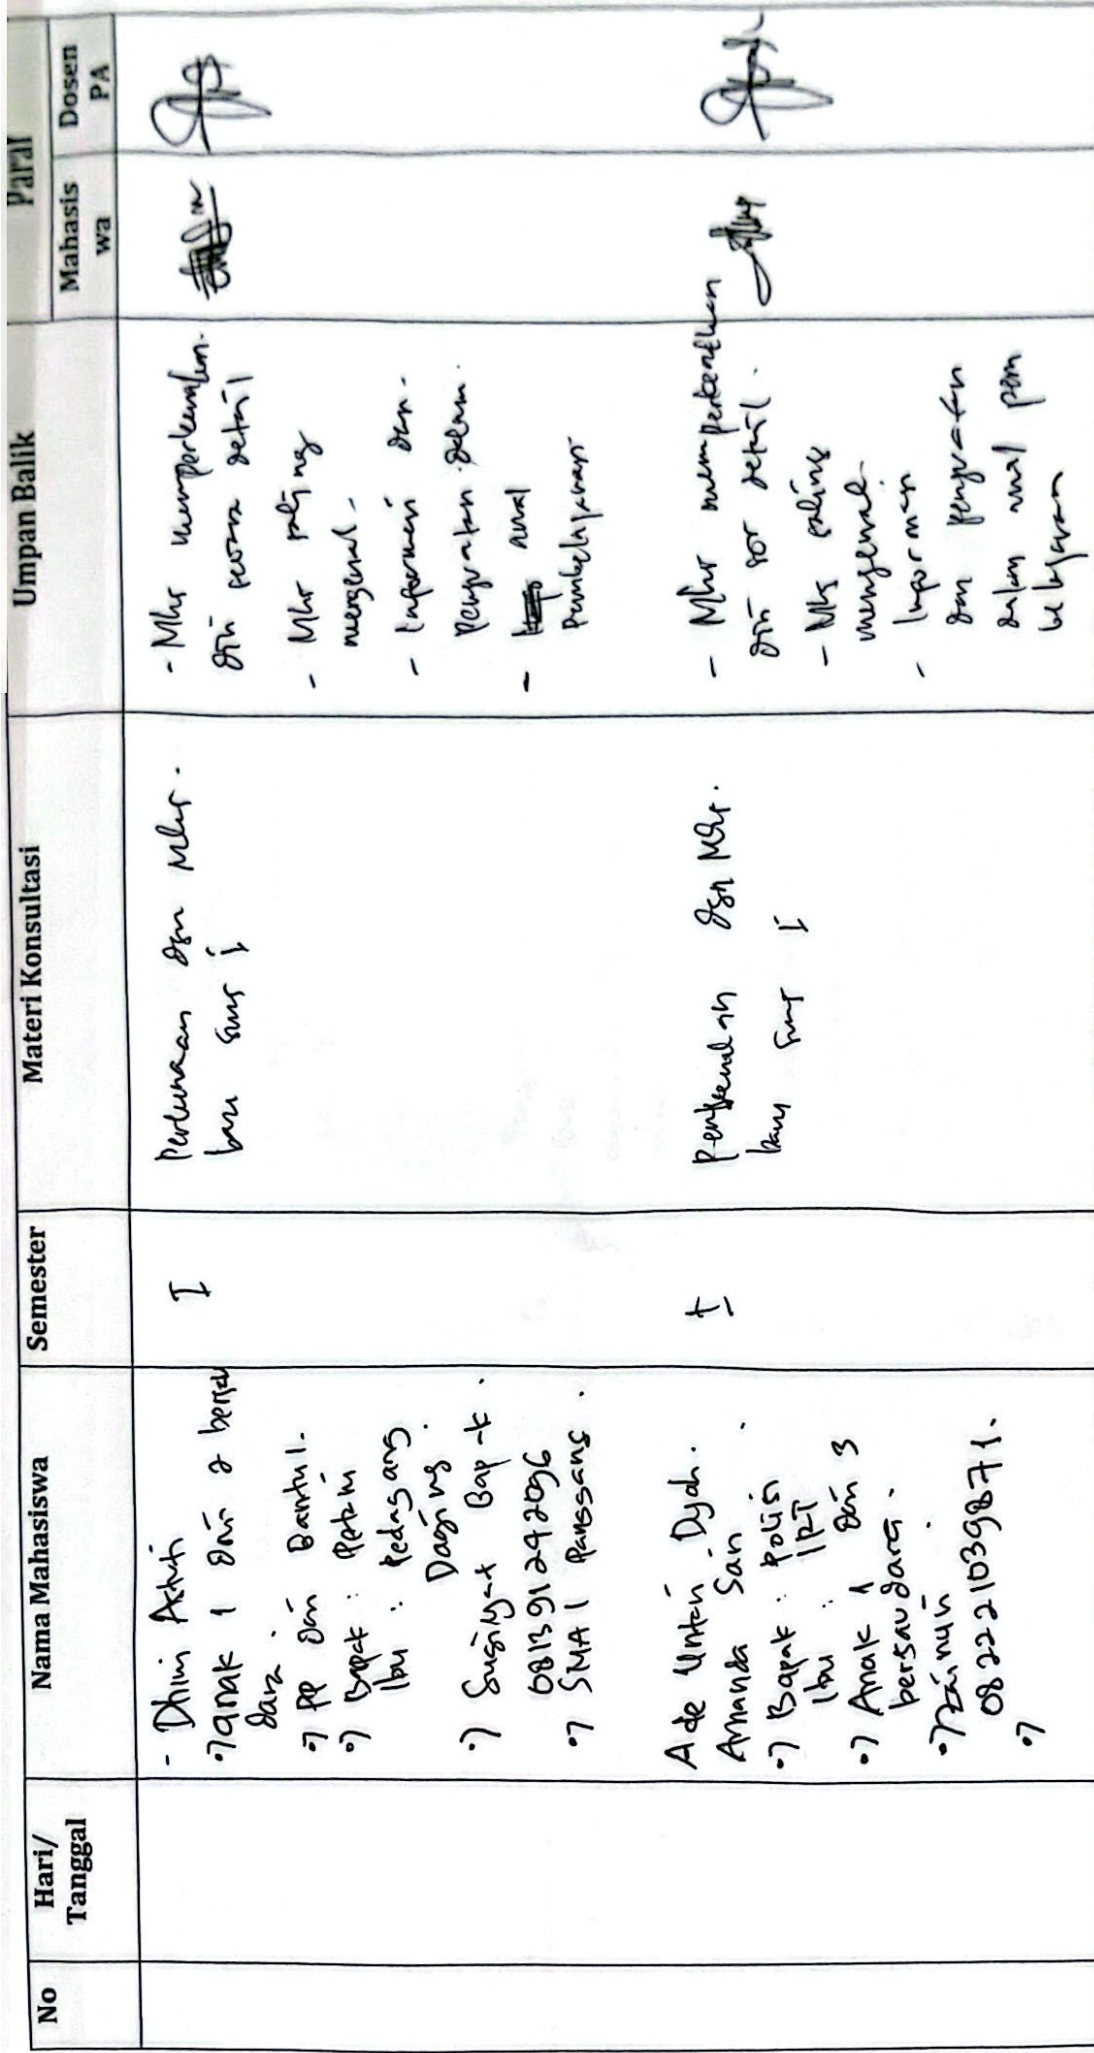 No
Hari/
Tanggal
Nama Mahasiswa
Semester
Materi Konsultasi
Umpan Balik
Paraf
Mahasis
wa
Dosen
PA
- Dhini Astuti
•) anak 1 dari 2 bersau
dara.
•) PP dari Bantul.
•) Bapak : Petani
Ibu : Pedagang
Daging.
•) Sugiyat Bapak.
081391242096
•) SMA 1 Panggang.
I
Perkenaan dgn Mhs.
baru smt I
- Mhs memperkenalkan.
diri secara detail
- Mhs saling
mengenal-
- Informasi dan-
Penguatan dalam.
- awal
Pembelajaran
Ade Untari Dyah.
Amanda Sari.
•) Bapak : polisi
Ibu : IRT
•) Anak 1 dari 3
bersaudara.
•)
082221039871.
•)
I
Perkenalan dgn Mhs.
baru smt I
- Mhs memperkenalkan
diri scr detail.
- Mhs saling
mengenal.
- Informasi
dan penguatan
dalam awal pem
belajaran